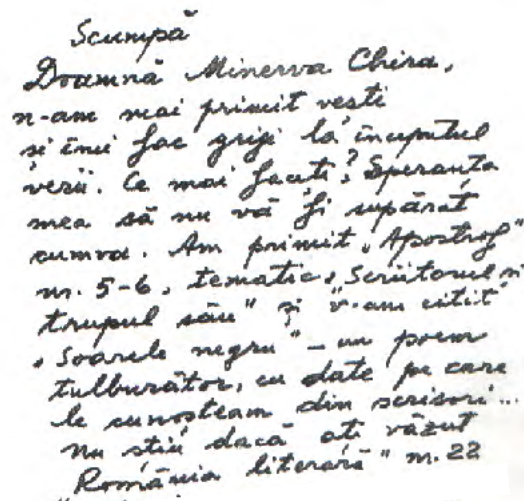 Scumpă
Doamnă Minerva Chira,
n-am mai primit vesti
și îmi fac griji la începutul
verii. Ce mai faceți? Speranța
mea să nu vă fi supărat
cumva. Am primit „Apostrof"
nr. 5-6, tematic „Scriitorul și
trupul său" și v-am citit
„Soarele negru" – un poem
tulburător, cu date pe care
le cunoșteam din scrisori...
nu știu dacă ați văzut
România literară" nr. 22